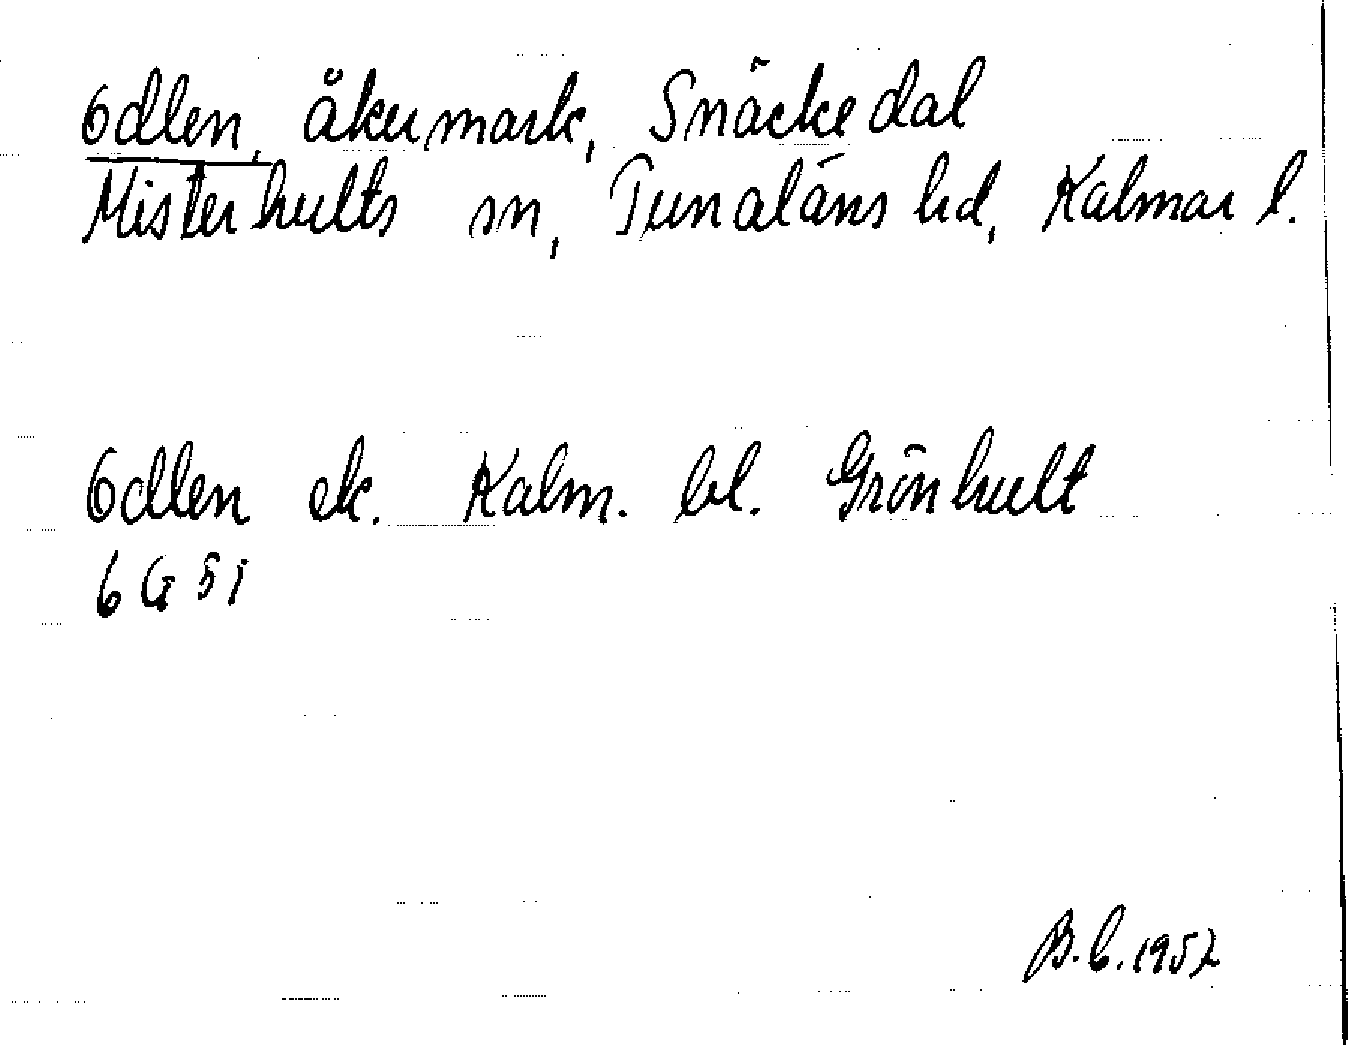 Odlen, åkermark, Snäckedal
Misterhults sn, Tunaläns hd, Kalmar l.
Odlen ek. Kalm. bl. Grönhult
6G 5i
B.C. 1952